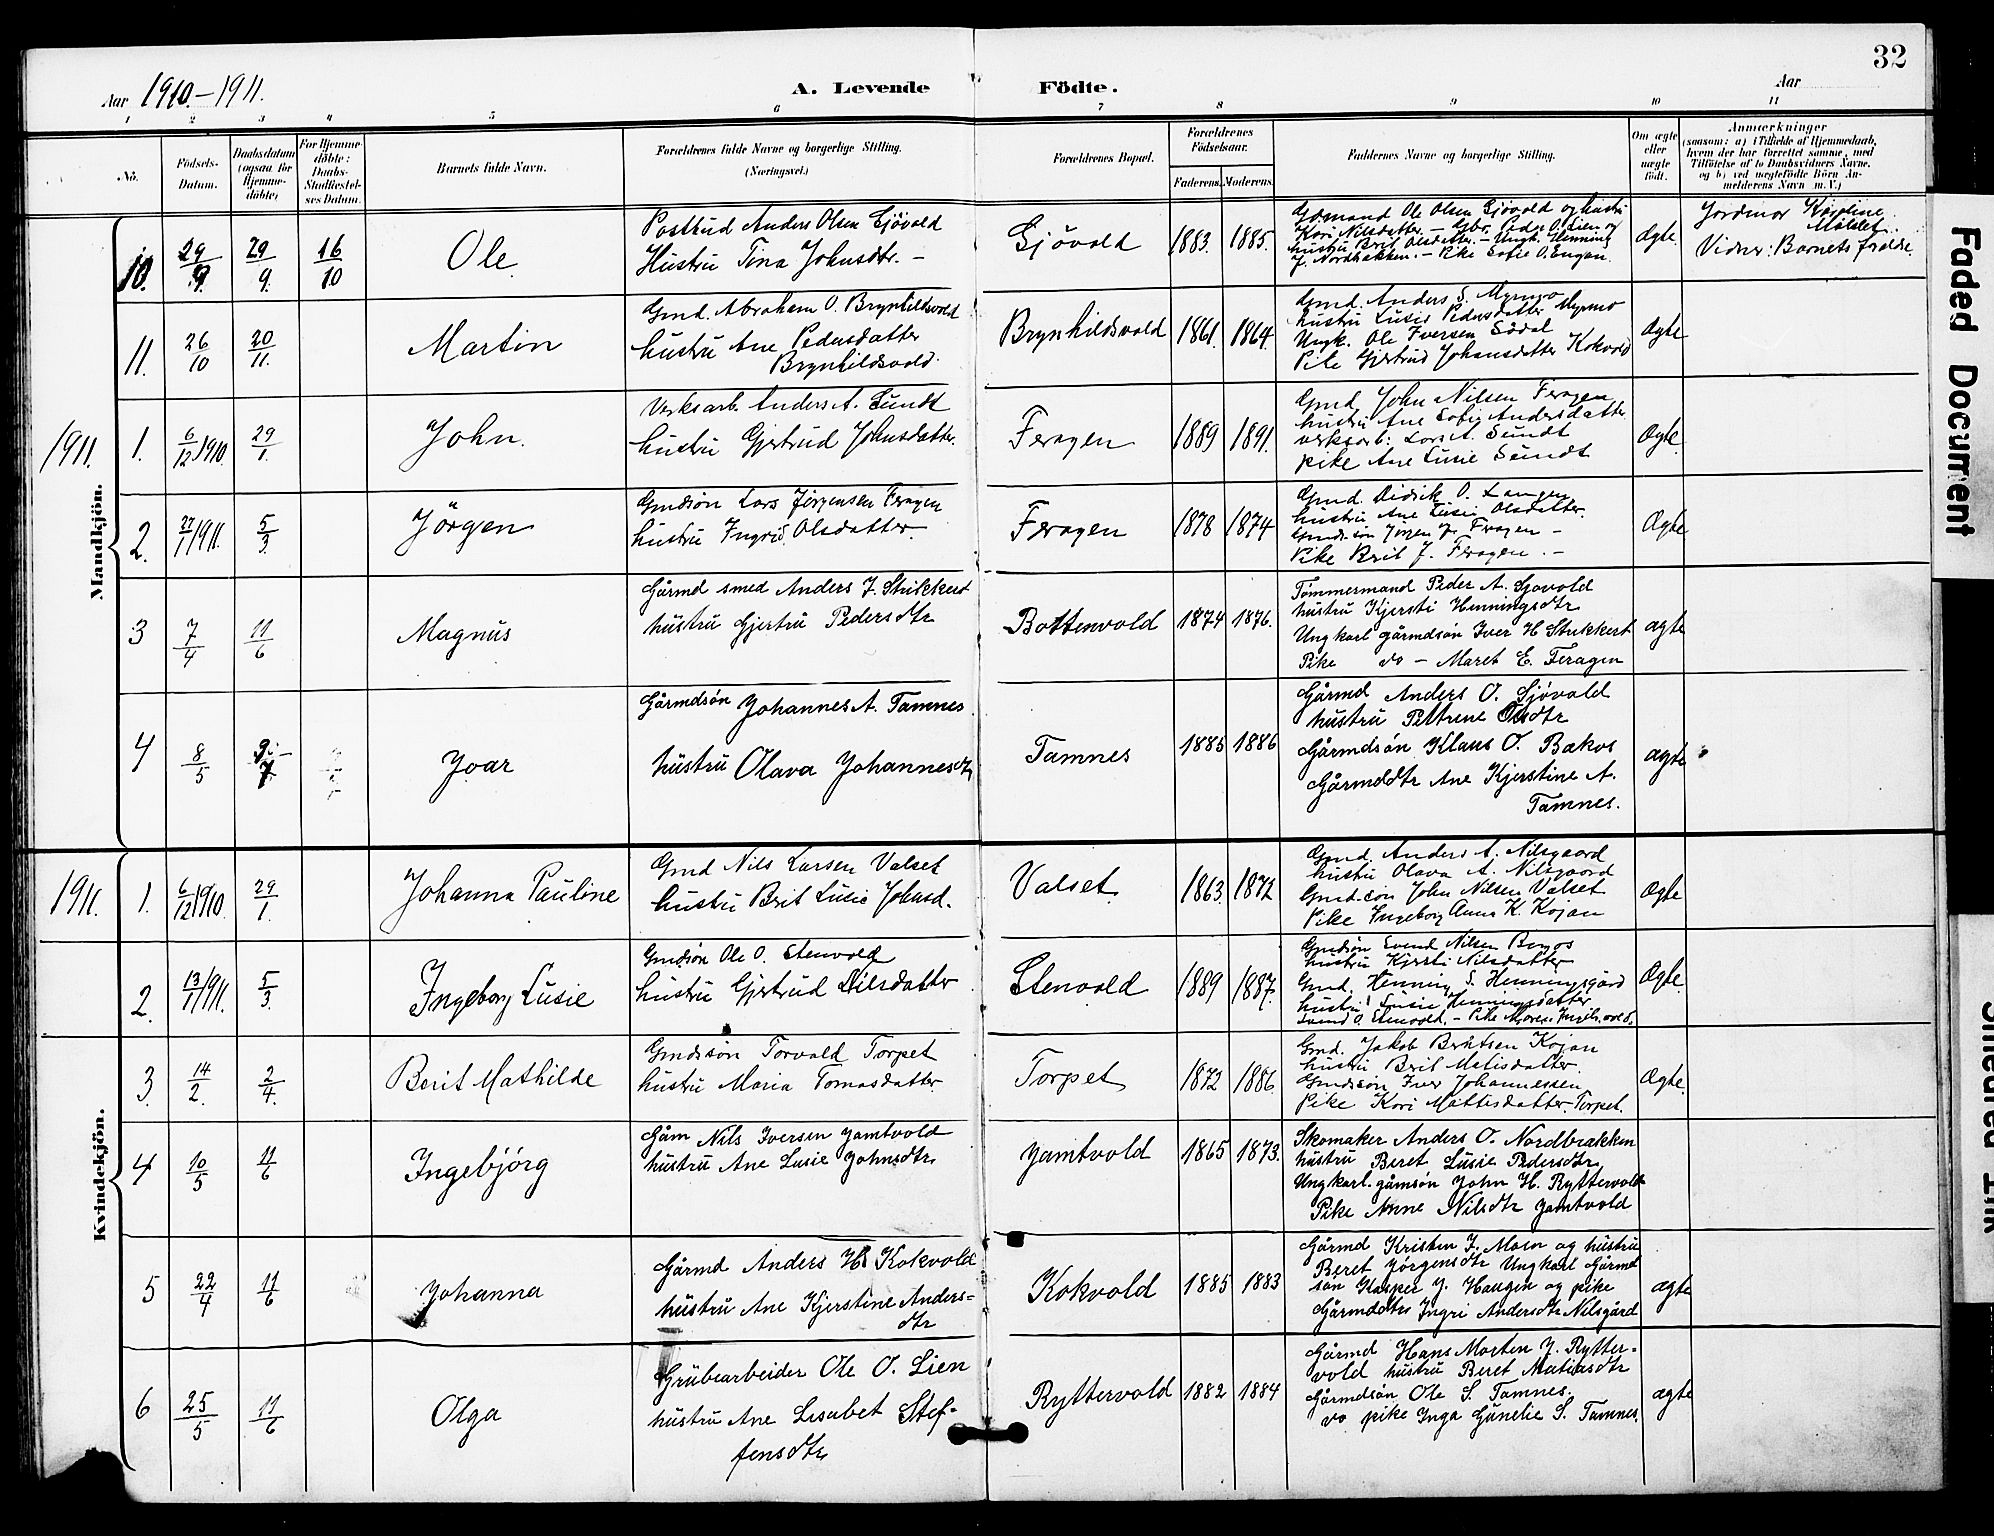 32
Aar 1910.-1911.
A. Levende Födte.
Aar
1 2 3 4 5 6 7 8 9 10 11
No.
Födsels-
Datum.
Daabsdatum
(ogsaa for
Hjemme-
döbte)
For Hjemme-
döbte:
Daabs-
Stadfæstel-
ses Datum.
Barnets fulde Navn.
Forældrenes fulde Navne og borgerlige Stilling.
(Næringsvei.)
Forældrenes Bopæl.
Forældrenes
Födselsaar.
Faderens. Moderens.
Faddernes Navne og borgerlige Stilling.
Om ægte
eller
uægte
födt.
Anmærkninger
(saasom: a) i Tilfælde af Hjemmedaab,
hvem der har forrettet samme, med
Tilföielse af to Daabsvidners Navne,
og b) ved uægtefödte Börn An-
melderens Navn m. V.)
Mandkjön.
10. 29/9 29/9. 16/10 Ole
Postbud Anders Olsen Sjövold
Hustru Tina Johnsdtr. –
Sjövold 1883. 1885.
Gdmand Ole Olsen Sjövold og hustru
Kari Nilsdatter. – Gbr. Peder O. Lien og
hustru Brit Olsdatter. – Ungk. Henning
J. Nordbakken. – Pike Sofie O. Engan.
Ægte
Jordmor Karoline
Vidner: Barnets forældre.
11. 26/10 20/11. Martin
Gmd. Abraham O. Brynhildsvold
hustru Ane Pedersdatter
Brynhildsvold.
Brynhildsvold 1861. 1864.
Gmd. Anders S. Myrmo
hustru Lusie Pedersdatter Myrmo
Ungk. Ole Iversen Södal
Pike Gjertrud Johansdatter Kokvold
Ægte
1911.
1. 6/12 1910. 29/1. John.
Verksarb. Anders A. Sundt
hustru Gjertrud Johnsdatter.
Feragen 1889 1891.
Gmd. John Nilsen Feragen
hustru Ane Sofie Andersdatter
verksarb: Lars A. Sundt
pike Ane Lusie Sundt
Ægte.
2. 27/1 1911. 5/3. Jörgen
Gmdsön Lars Jørgensen Feragen
hustru Ingrid Olsdatter.
Feragen 1878 1874
Gmd. Didrik O. Langen
hustru Ane Lusie Olsdatter
Gmdssön Jörgen J. Feragen –
Pike Berit J. Feragen. –
Ægte
3 7/4 11/6 Magnus
Gårmd smed Anders J. Stikkert
hustru Gjertru Pedersdtr
Bottenvold 1874 1876.
Tømmermand Peder A. Sjøvold
hustru Kjersti Henningsdtr
Ungkarl gårmdsön Iver H Stikkert
Pike do – Maret E. Feragen
ægte
4 8/5 9/7 Joar
Gårmdsön Johannes A. Tamnes
hustru Olava Johannesdtr
Tamnes 1885 1886
Gårmd Anders O. Sjövold
hustru Pettrine Olsdtr
Gårmdsön Klaus O. Bakos
Gårmddtr Ane Kjerstine A.
Tamnes.
ægte
Kvindekjön.
1911.
1. 6/12 1910. 29/1. Johanna Pauline
Gmd Nils Larsen Valset
hustru Brit Lusie Johnsd.
Valset. 1863. 1872
Gmd. Anders A. Nilsgaard
hustru Olava A. Nilsgaard
Gmd.sön John Nilsen Valset
Pike Ingeborg Anna K. Kojan
Ægte
2. 13/1 1911. 5/3. Ingeborg Lusie
Gmdsön Ole O. Stenvold
hustru Gjertrud Nilsdatter
Stenvold 1889 1887.
Gmdsön Svend Nilsen Bergos
hustru Kjersti Nilsdatter
Gmd. Henning S. Henningsgård
hustru Lusie Henningsdatter
Ægte.
3. 14/2. 2/4. Berit Mathilde
Gmdssön Torvald Torpet
hustru Maria Tomasdatter
Torpet 1872 1886.
Gmd. Jakob Berntsen Kojan
hustru Berit Matisdatter.
Gmdssön Iver Johannessen
Pike Kari Mattisdatter Torpet.
Ægte.
4 10/5 11/6 Ingebjörg
Gåm Nils Iversen Jamtvold
hustru Ane Lusie Johnsdtr
Jamtvold 1865 1873.
Skomaker Anders O. Nordbrækken
hustru Beret Lusie Pedersdtr
Ungkarl. gåmsön John H. Ryttervold
Pike Anne Nilsdtr Jamtvold
5 22/4 11/6 Johanna
Gårmd Anders H Kokvold
hustru Ane Kjerstine Anders-
dtr
Kokvold 1885 1883
Gårmd Kristen J. Moen og hustru
Beret Jörgensdtr Ungkarl Gårmd
sön Kasper J. Haugen og pike
Gårmddtr Ingri Andersdtr Nilsgård
ægte
6 25/5 11/6 Olga
Grubearbeider Ole O. Lien
hustru Ane Lisabet Stef-
fensdtr
Ryttervold 1882 1884
Gårmd Hans Morten J. Rytter-
vold hustru Beret Matiasdtr
Gårmdsön Ole S. Tamnes.
do pike Inga Gunelie S. Tamnes.
ægte
Faded Document
Smeared Ink